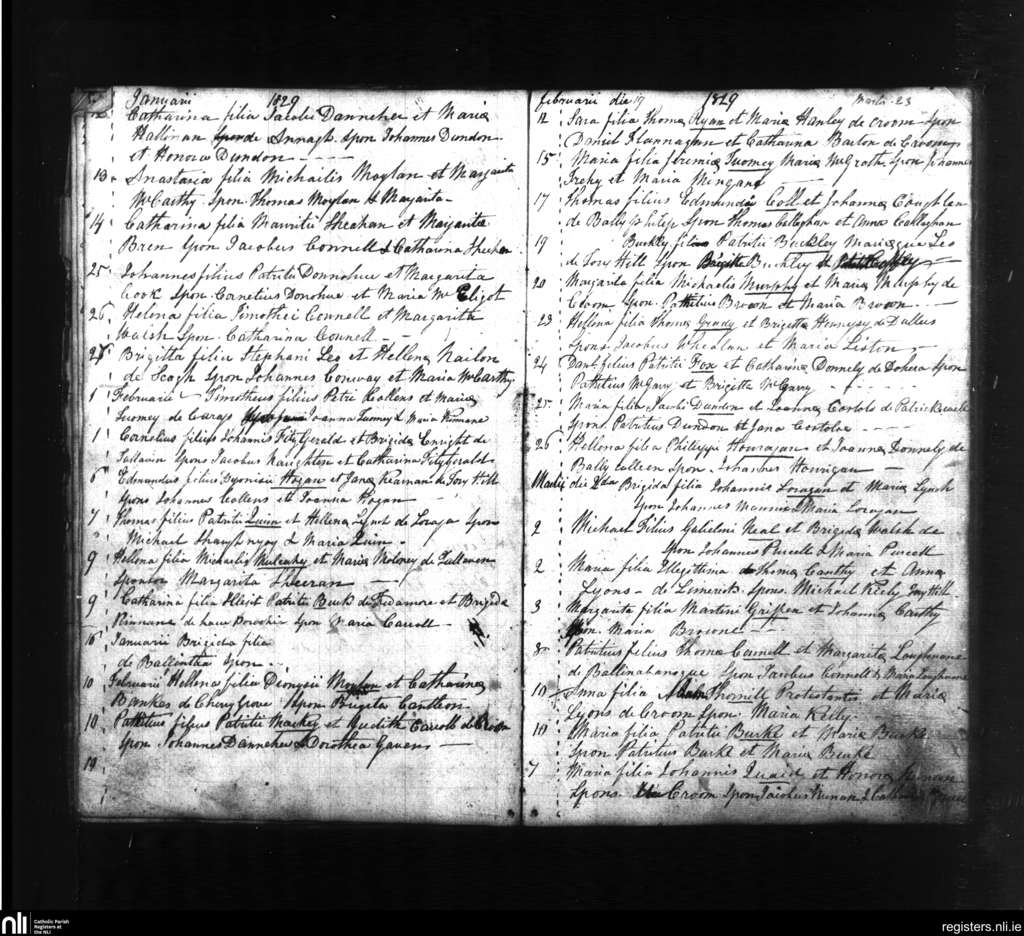 Januarii 1829
12 Catharina filia Jacobi Dannehee et Maria
Hallinan Annagh Spon Johannes Dundon
et Honora Dundon
13 Anastasia filia Michaelis Moylan et Margarita
McCarthy Spon. Thomas Moylan & Margarita
14 Catharina filia Mauritii Sheehan et Margarita
Bren Spon Jacobus Connell & Catharina Sheehan
25 Johannes filius Patritii Donnohue et Margarita
Cook Spon. Cornelius Donohue et Maria Mc Eligot
26 Helena filia Timothei Connell et Margarita
Walsh Spon. Catharina Connell
28 Brigitta filia Stephani Leo et Hellena
de Scogh Spon Johannes Conway et Maria McCarthy
1 Februarii Timotheus filius Petri Collens et Maria
Twomey de Carass Joanna Twomey & Maria
1 Cornelius filius Johannis Fitzgerald et Brigida Enright de
Spons Jacobus Naughton et Catharina Fitzgerald
6 Edmundus filius Dyonisii Hogan et Jana de Tory Hill
Spons Johannes Collens et Joanna Hogan
7 Thomas filius Patritii Quin et Hellena Lynch de Spon
Michael Shaughnessy & Maria Quin
9 Hellena filia Michaelis Mulcahy et Maria Moloney de
Sponsor Margarita Sheeran
9 Catharina filia Illegit Patritii Burk de Fedamore et Brigida
Kinnane de Spon Maria Carroll
15 Januarii Brigida filia
de Ballinthia Spon
10 Februarii Hellena filia Dionysii Moylan et Catharina
Bankes de Cherrygrove Spon Brigitta
10 Patritius filius Patritii Mackey et Judith Carroll de Croom
Spon Johannes Dannehee & Dorothea
10
februarii die 19 1829 Martii 23
12 Sara filia Thoma Ryan et Maria Hanley de Croom Spon
Daniel Flannagan et Catharina Barlon de Croom
15 Maria filia Jeremia Twomey Maria McGrath Spon Johannes
et Maria Mengan
17 Thomas filius Edmundi Coll et Johanna Coughlan
de Ballyphilip Spon Thomas Callaghan et Anna Callaghan
19 Buckley filius Patritii Buckley Maria Leo
de Tory Hill Spon Brigitta Buckley et
20 Margarita filia Michaelis Murphy et Maria Murphy de
Croom Spon. Patritius Brown et Maria Brown
23 Hellena filia Thoma Grady et Brigitta Hennessy de Dullas
Spons Jacobus Whealan et Maria Liston
24 filius Patritii Fox et Catharina Donnely de Dohera Spon
Patritius McGarry et Brigitta McGarry
25 Maria filia Jacobi Dundon et Joanna Costolo de Patrickswell
Spons Patritius Dundon et Jana Costoloe
26 Hellena filia Philippi Houragan et Joanna Donnely de
Bally Spon. Johannes Hourigan
Martii die Brigida filia Johannis Loragan et Maria Lynch
Spon Johannes & Maria Loragan
2 Michael filius Gulielmi Neal et Brigida Walsh de
Spon Johannes Purcell & Maria Purcell
2 Maria filia Illegitima Thoma Carthy et Anna
Lyons de Limerick Spons. Michael Kelly Tory Hill
3 Margarita filia Martini Griffen et Johanna Carthy
Spon. Maria Browne
8 Patritius filius Thoma Connell et Margarita Loughnane
de Ballinahanogue Spon Jacobus Connell & Maria Loughnane
10 Anna filia Thornill Protestantis et Maria
Lyons de Croom Spon. Maria Kelly
10 Maria filia Patritii Burke et Maria Burke
Spon Patritius Burke et Maria Burke
7 Maria filia Johannis Quaid et Honora
Spons Croom Spon Jacobus
nli Catholic Parish Registers at the NLI
registers.nli.ie